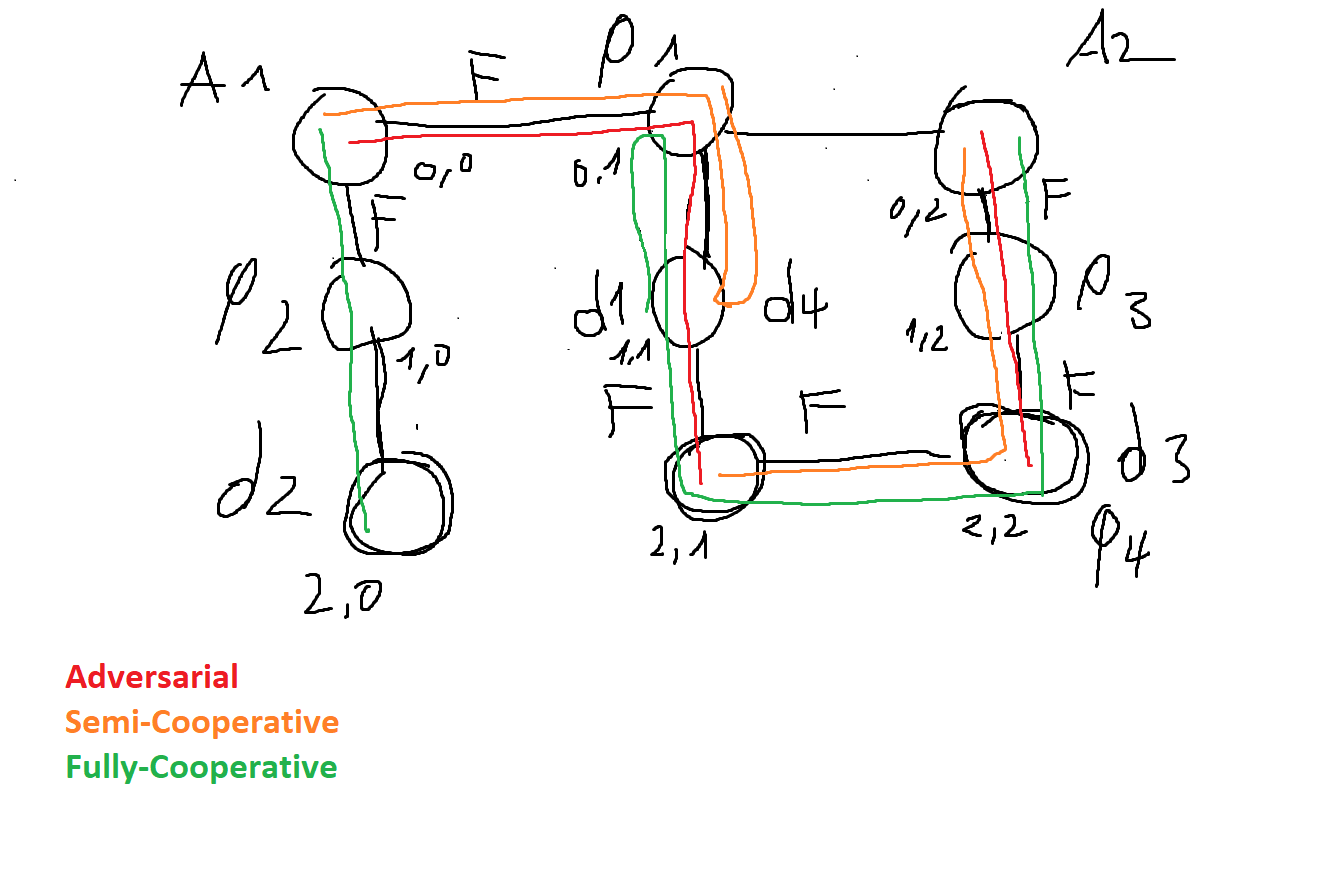 A1 F P1 A2
0,0 0,1 0,2 F
F
P2 d1 d4 P3
1,0 1,1 1,2
F F F
d2 d3
2,1 2,2 P4
2,0
Adversarial
Semi-Cooperative
Fully-Cooperative